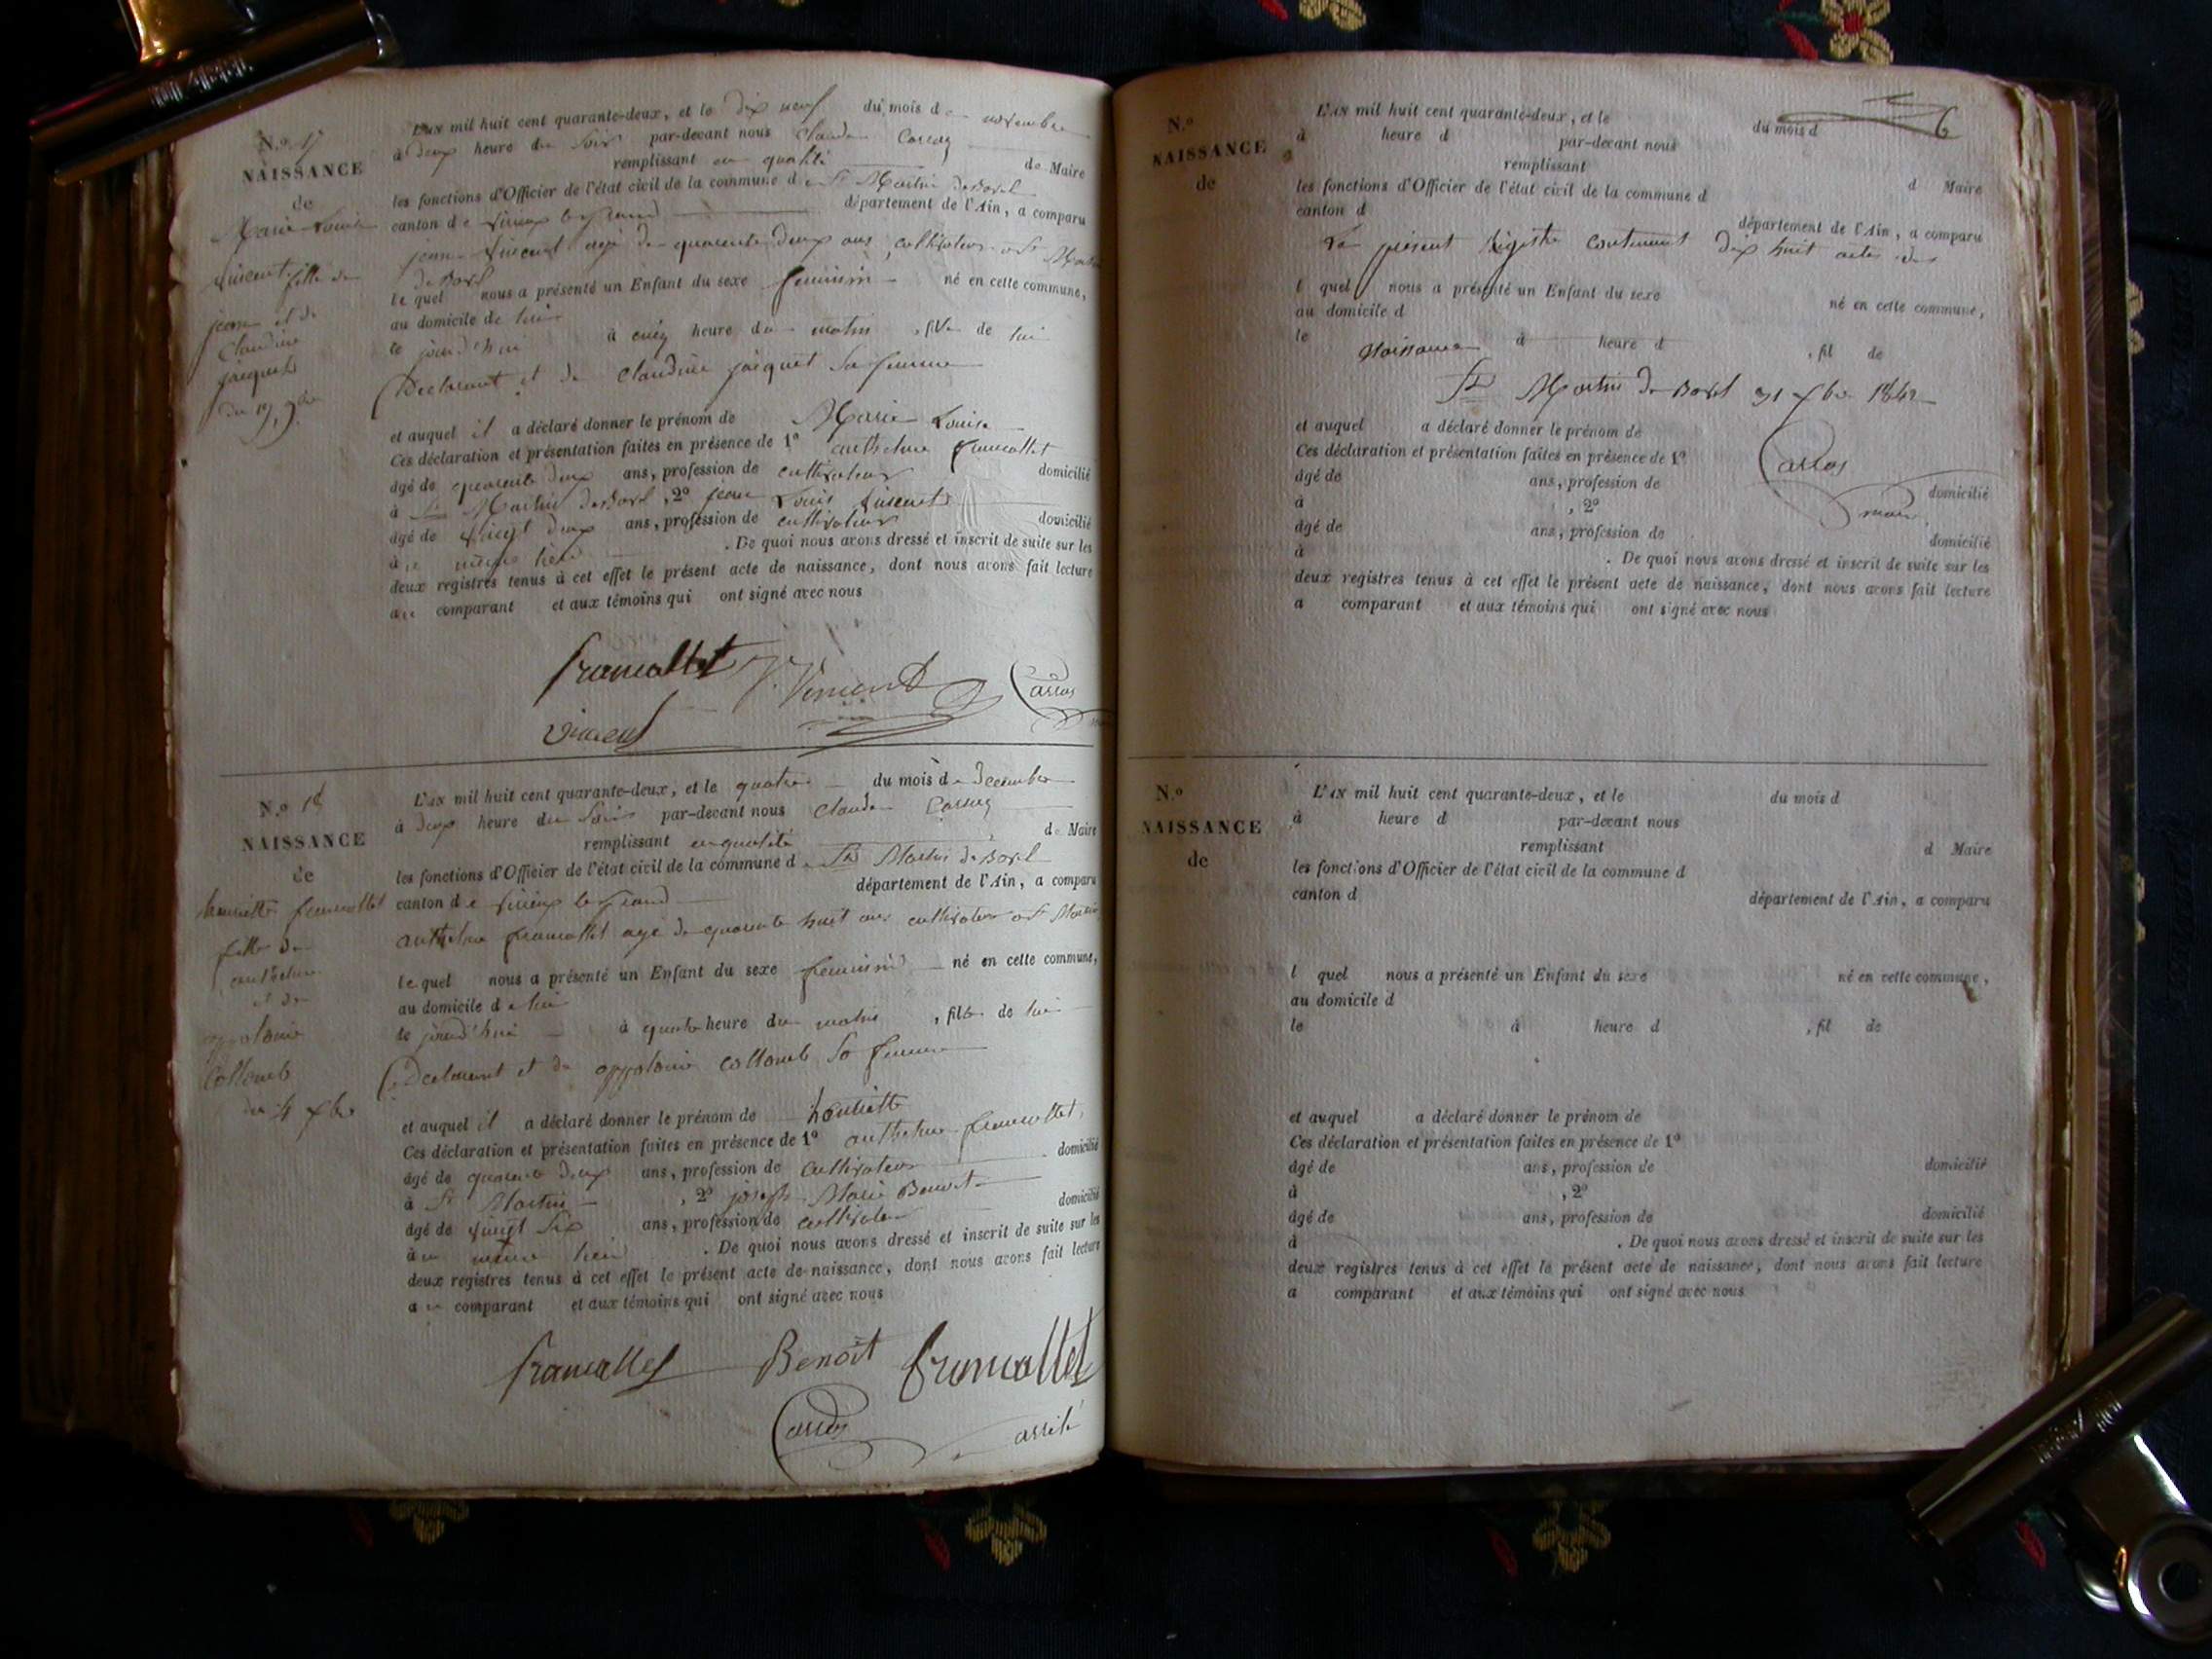 N.º 17
NAISSANCE
de
Marie Louise
Vincent fille de
jean et de
Claudine
jacquet
du 19 9bre
L'AN mil huit cent quarante-deux, et le dix neuf du mois de novembre
à deux heure du soir par-devant nous Claude
remplissant en qualité de Maire
les fonctions d'Officier de l'état civil de la commune de St Martin de Bavel
canton de Virieux le grand département de l'Ain, a comparu
jean Vincent agé de quarante deux ans, cultivateur a St Martin
de Bavel
le quel nous a présenté un Enfant du sexe feminin né en cette commune,
au domicile de lui
le jourd'hui à cinq heure du matin, fille de lui
Declarant et de Claudine jacquet sa femme
et auquel il a déclaré donner le prénom de Marie Louise
Ces déclaration et présentation faites en présence de 1º anthelme francallet
âgé de quarante deux ans, profession de cultivateur domicilié
à St Martin de Bavel, 2º jean Louis Vincent
âgé de vingt deux ans, profession de cultivateur domicilié
au même lieu. De quoi nous avons dressé et inscrit de suite sur les
deux registres tenus à cet effet le présent acte de naissance, dont nous avons fait lecture
au comparant et aux témoins qui ont signé avec nous
francallet J. Vincent
Vincent
N.º 18
NAISSANCE
de
henriette francallet
fille de
anthelme
et de
appolonie
Collomb
du 4 xbre
L'AN mil huit cent quarante-deux, et le quatre du mois de decembre
à deux heure du soir par-devant nous Claude
remplissant en qualité de Maire
les fonctions d'Officier de l'état civil de la commune de St Martin de Bavel
canton de Virieux le grand département de l'Ain, a comparu
anthelme francallet agé de quarante huit ans cultivateur a St Martin
le quel nous a présenté un Enfant du sexe feminin né en cette commune,
au domicile de lui
le jourd'hui à quatre heure du matin, fille de lui
Declarant et de appolonie collomb sa femme
et auquel il a déclaré donner le prénom de henriette
Ces déclaration et présentation faites en présence de 1º anthelme francallet
âgé de quarante deux ans, profession de cultivateur domicilié
à St Martin, 2º joseph Marie Benoit
âgé de vingt six ans, profession de cultivateur domicilié
au même lieu. De quoi nous avons dressé et inscrit de suite sur les
deux registres tenus à cet effet le présent acte de naissance, dont nous avons fait lecture
au comparant et aux témoins qui ont signé avec nous
francallet Benoit francallet
6
N.º
NAISSANCE
de
L'AN mil huit cent quarante-deux, et le du mois d
à heure d par-devant nous
remplissant d Maire
les fonctions d'Officier de l'état civil de la commune d
canton d département de l'Ain, a comparu
Le présent Registre contenant dix huit actes de
l quel nous a présenté un Enfant du sexe né en cette commune,
au domicile d
le à heure d, fil de
Naissance
St Martin de Bavel 31 xbre 1842
et auquel a déclaré donner le prénom de
Ces déclaration et présentation faites en présence de 1º
âgé de ans, profession de domicilié
à , 2º
maire
âgé de ans, profession de domicilié
à . De quoi nous avons dressé et inscrit de suite sur les
deux registres tenus à cet effet le présent acte de naissance, dont nous avons fait lecture
a comparant et aux témoins qui ont signé avec nous
N.º
NAISSANCE
de
L'AN mil huit cent quarante-deux, et le du mois d
à heure d par-devant nous
remplissant d Maire
les fonctions d'Officier de l'état civil de la commune d
canton d département de l'Ain, a comparu
l quel nous a présenté un Enfant du sexe né en cette commune,
au domicile d
le à heure d, fil de
et auquel a déclaré donner le prénom de
Ces déclaration et présentation faites en présence de 1º
âgé de ans, profession de domicilié
à , 2º
âgé de ans, profession de domicilié
à . De quoi nous avons dressé et inscrit de suite sur les
deux registres tenus à cet effet le présent acte de naissance, dont nous avons fait lecture
a comparant et aux témoins qui ont signé avec nous